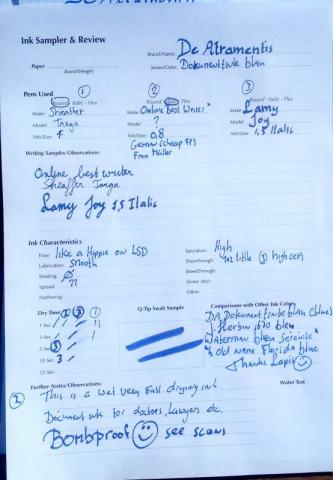 Ink Sampler & Review
Brand/Name: De Atramentis
Paper
Series/Color: Dokumentinte blau
Brand/Weight
Pens Used 1 2 3
Round - Italic - Flex
Round - Italic - Flex
Round - Italic - Flex
Make: Sheaffer
Make: Online Best Writer
Make: Lamy
Model: Targa
Model: ?
Model: Joy
Nib/Size: F
Nib/Size: 0,8
Nib/Size: 1,5 Italic
German (cheap FP)
From Müller
Writing Samples/Observations:
Online best writer
Sheaffer Targa
Lamy Joy 1,5 Italic
Ink Characteristics
Flow: like a Hippie on LSD
Saturation: High
Lubrication: smooth
Showthrough:
Shading:
Bleedthrough:
Spread: ??
Smear (dry):
Feathering:
Other:
Dry Time 1 2 3
Q-Tip Swab Sample
Comparisons with Other Ink Colors
1 Sec.
5 Sec.
10 Sec. 3
15 Sec.
DA Dokumentinte blau (blue)
J. Herbin 1670 bleu
Waterman bleu Sérénité
Old name Florida blue
Thanks
Further Notes/Observations:
Water Test
This is a wet very fast drying ink
Document ink for doctors, Lawyers etc.
Bombproof see scans